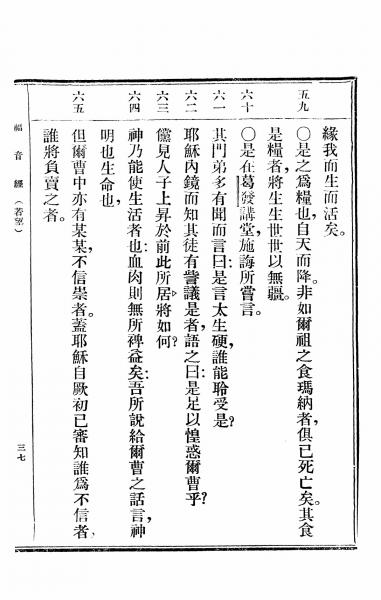 緣我而生而活矣。
五九 ○是之爲糧也，自天而降。非如爾祖之食瑪納者，俱已死亡矣。其食
是糧者，將生生世世以無疆。
六十 ○是在葛發講堂，施誨所嘗言。
六一 其門弟多有聞而言曰：是言太生硬，誰能聆受是？
六二 耶穌內鏡而知其徒有訾議是者，語之曰：是足以惶惑爾曹乎？
六三 儻見人子上昇於前此所居，將如何？
六四 神乃能使生活者也：血肉則無所裨益矣：吾所說給爾曹之話言，神
明也生命也，
六五 但爾曹中亦有某某，不信崇者。蓋耶穌自厥初已審知誰爲不信者，
誰將負賣之者。
福音經（若望） 三七